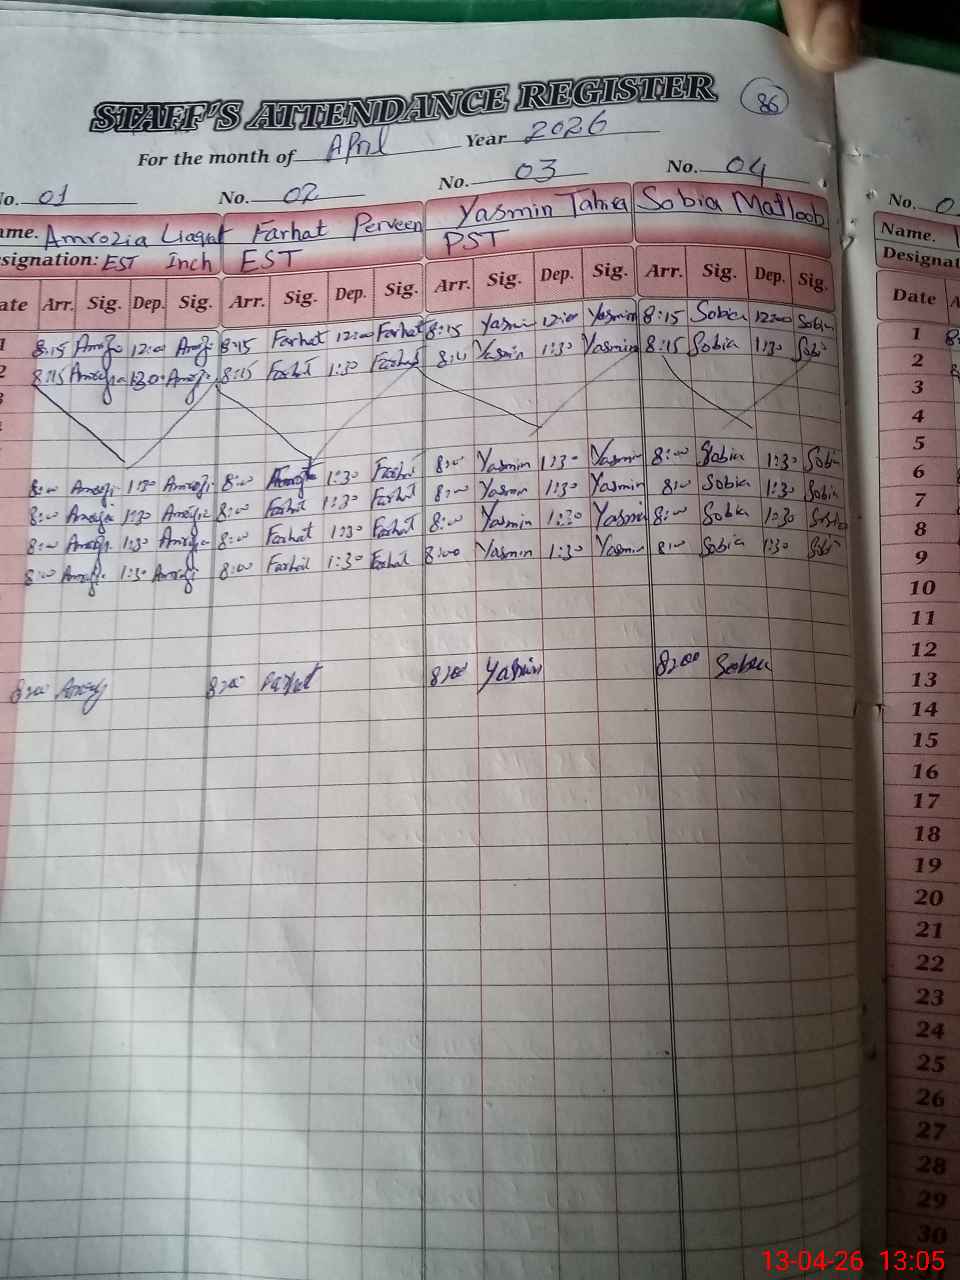 STAFF'S ATTENDANCE REGISTER 86
For the month of April Year 2026
No. 01 No. 02 No. 03 No. 04 No.
Name. Amrozia Liaqat Farhat Perveen Yasmin Tahira Sobia Matloob Name.
Designation: EST Inch EST PST Designat
Date Arr. Sig. Dep. Sig. Arr. Sig. Dep. Sig. Arr. Sig. Dep. Sig. Arr. Sig. Dep. Sig. Date
1 8:15 12:00 8:15 Farhat 12:00 Farhat 8:15 Yasmin 12:00 Yasmin 8:15 Sobia 12:00 Sobia 1
2 8:15 1:30 8:15 Farhat 1:30 Farhat 8:00 Yasmin 1:30 Yasmin 8:15 Sobia 1:30 Sobia 2
3
4
5
8:00 1:30 8:00 1:30 Farhat 8:00 Yasmin 1:30 Yasmin 8:00 Sobia 1:30 Sobia 6
8:00 1:30 8:00 Farhat 1:30 Farhat 8:00 Yasmin 1:30 Yasmin 8:00 Sobia 1:30 Sobia 7
8:00 1:30 8:00 Farhat 1:30 Farhat 8:00 Yasmin 1:30 Yasmin 8:00 Sobia 1:30 Sobia 8
8:00 1:30 8:00 Farhat 1:30 Farhat 8:00 Yasmin 1:30 Yasmin 8:00 Sobia 1:30 Sobia 9
10
11
12
8:00 8:00 Farhat 8:00 Yasmin 8:00 Sobia 13
14
15
16
17
18
19
20
21
22
23
24
25
26
27
28
29
30
13-04-26 13:05